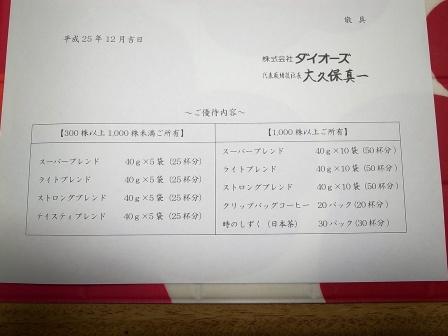 敬具
平成25年12月吉日
株式会社 ダイオーズ
代表取締役社長 大久保真一
～ご優待内容～
【300株以上1,000株未満ご所有】 【1,000株以上ご所有】
スーパーブレンド 40g×5袋 (25杯分) スーパーブレンド 40g×10袋 (50杯分)
ライトブレンド 40g×5袋 (25杯分) ライトブレンド 40g×10袋 (50杯分)
ストロングブレンド 40g×5袋 (25杯分) ストロングブレンド 40g×10袋 (50杯分)
テイスティブレンド 40g×5袋 (25杯分) クリップバッグコーヒー 20パック (20杯分)
時のしずく (日本茶) 30パック (30杯分)